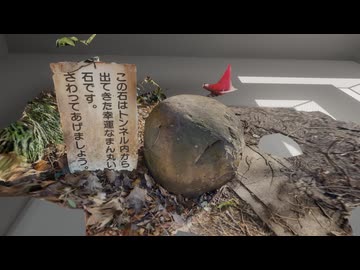 この石はトンネル内から
出てきた幸運なまん丸い
石です。
さわってあげましょう。